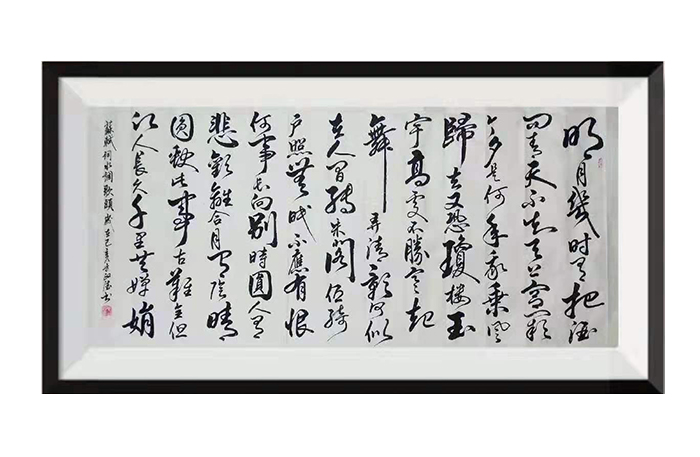 明月幾時有把酒
問青天不知天上宮闕
今夕是何年我欲乘風
歸去又恐瓊樓玉
宇高處不勝寒起
舞弄清影何似
在人間轉朱閣低綺
戶照無眠不應有恨
何事長向別時圓人有
悲歡離合月有陰晴
圓缺此事古難全但
願人長久千里共嬋娟
蘇軾詞水調歌頭歲在己亥書